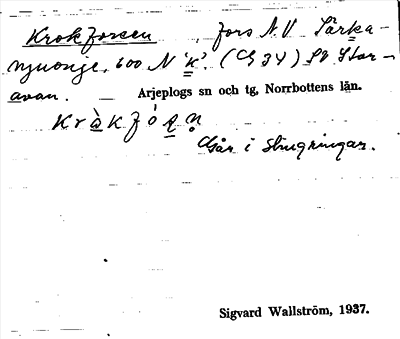 Krokforsen, fors N.V. Särka-
njuonje. 600 N 'K'. (C, 34) SV Stor-
avan. — Arjeplogs sn och tg, Norrbottens län.
Går i slingringar.
Sigvard Wallström, 1937.